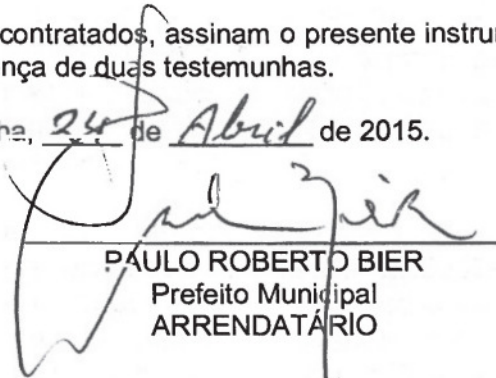 contratados, assinam o presente instru
nça de duas testemunhas.
ha, 24 de Abril de 2015.
PAULO ROBERTO BIER
Prefeito Municipal
ARRENDATÁRIO